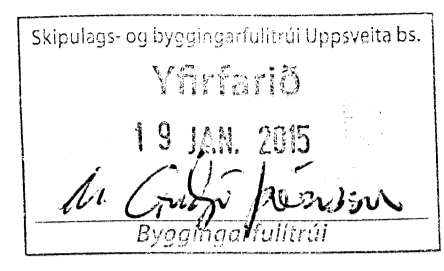 Skipulags- og byggingarfulltrúi Uppsveita bs.
Yfirfarið
19 JAN. 2015
Byggingarfulltrúi